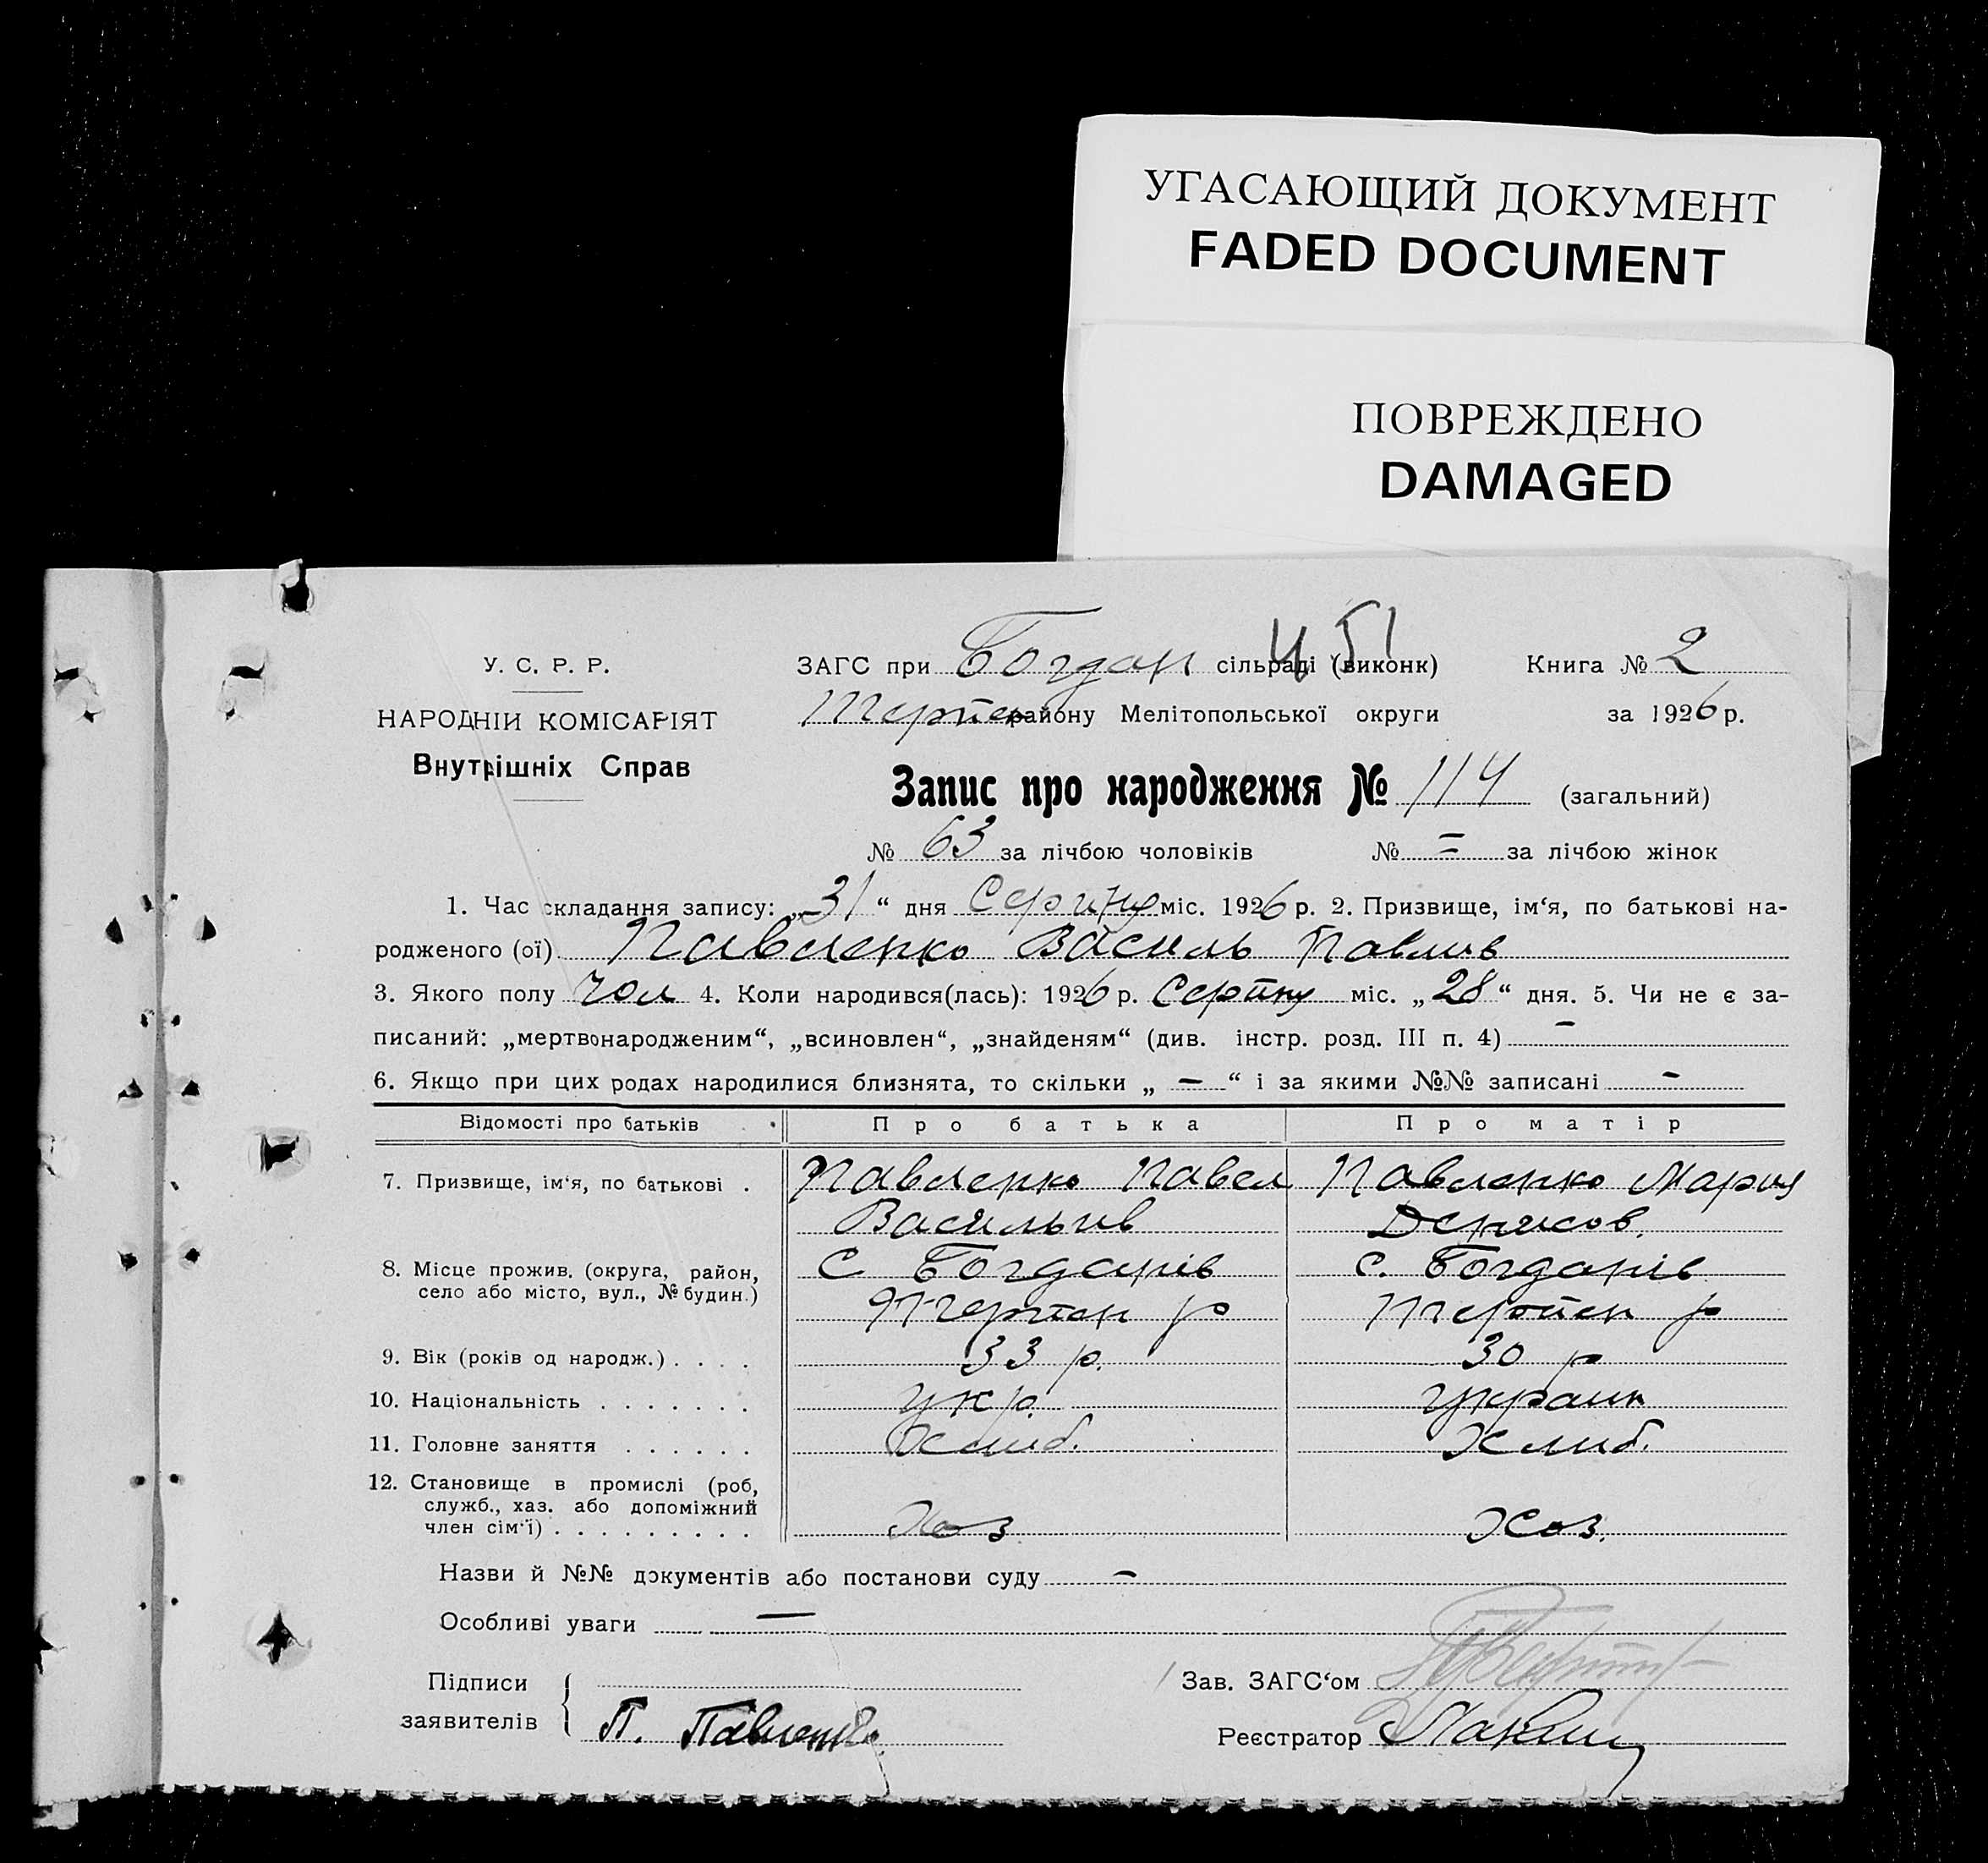 УГАСАЮЩИЙ ДОКУМЕНТ
FADED DOCUMENT
ПОВРЕЖДЕНО
DAMAGED
У. С. Р. Р.
НАРОДНІИ КОМІСАРІЯТ
Внутрішніх Справ
ЗАГС при Богдан сільраді (виконк) Книга № 2
Терпен району Мелітопольської округи за 1926 р.
Запис про народження № 114 (загальний)
№ 63 за лічбою чоловіків № = за лічбою жінок
1. Час складання запису: „31“ дня Серпну міс. 1926 р. 2. Призвище, ім‘я, по батькові на-
родженого (ої) Павленко Василь Павлив
3. Якого полу чол 4. Коли народився(лась): 1926 р. Серпну міс. „28“ дня. 5. Чи не є за-
писаний: „мертвонародженим“, „всиновлен“, „знайденям“ (див. інстр. розд. III п. 4) –
6. Якщо при цих родах народилися близнята, то скільки „ — “ і за якими №№ записані -
Відомості про батьків Про батька Про матір
7. Призвище, ім‘я, по батькові . Павленко Павел Павленко Мария
Васильив Денисов.
8. Місце прожив. (округа, район, С Богданів с. Богданів
село або місто, вул., № будин.) Терпен р Терпен р
9. Вік (років од народж.) . . . . 33 р. 30 р
10. Національність . . . . . . . укр. украин
11. Головне заняття . . . . . . Хлиб. Хлиб.
12. Становище в промислі (роб,
служб., хаз. або допоміжний
член сім‘ї) . . . . . . . . . Хоз Хоз.
Назви й №№ документів або постанови суду –
Особливі уваги —
Підписи Зав. ЗАГС‘ом
заявителів П. Павленко Реєстратор